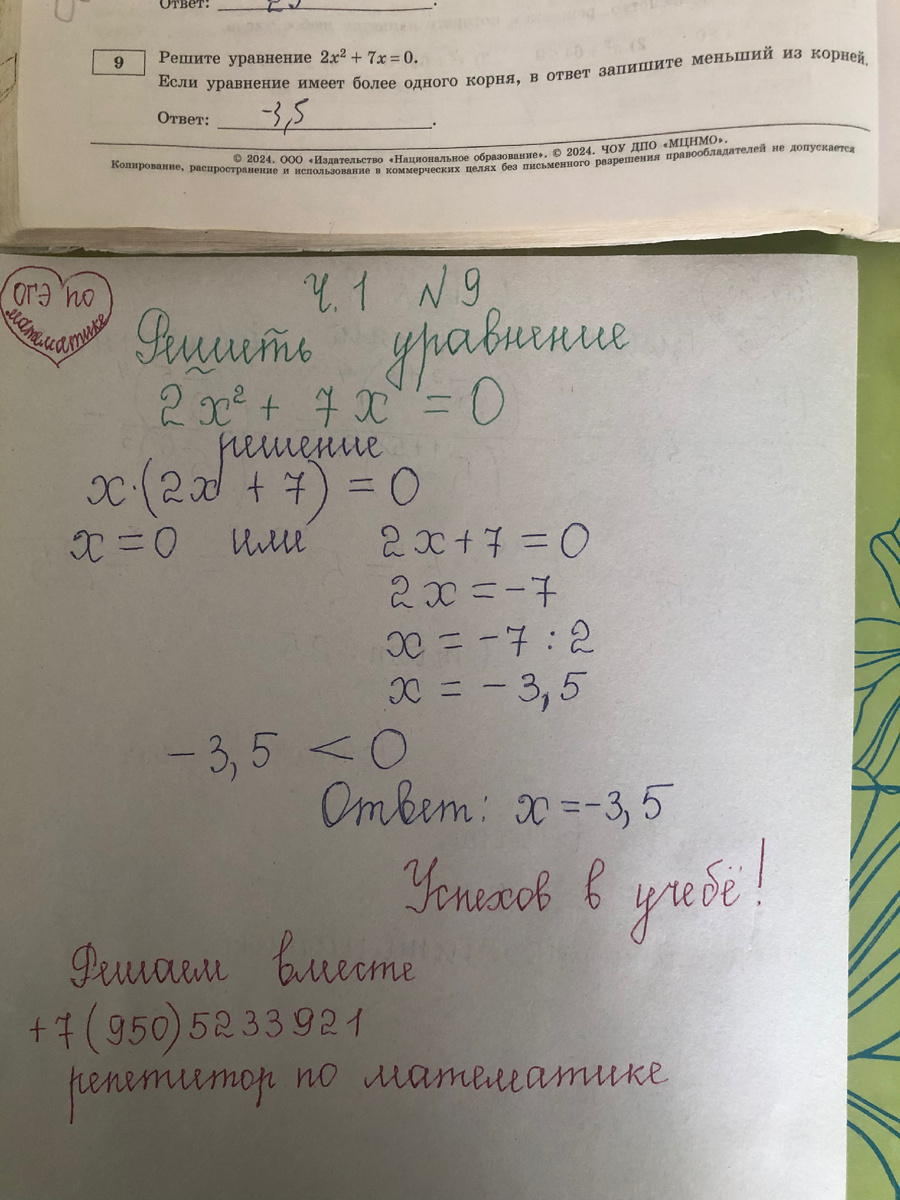 Ответ: 
9
Решите уравнение 2x² + 7x = 0.
Если уравнение имеет более одного корня, в ответ запишите меньший из корней.
Ответ: -3,5.
© 2024. ООО «Издательство «Национальное образование». © 2024. ЧОУ ДПО «МЦНМО».
Копирование, распространение и использование в коммерческих целях без письменного разрешения правообладателей не допускается
ОГЭ по
математике
Ч.1 №9
Решить уравнение
2x² + 7x = 0
решение
x·(2x + 7) = 0
x = 0 или 2x + 7 = 0
2x = -7
x = -7 : 2
x = -3,5
-3,5 < 0
Ответ: x = -3,5
Успехов в учебё!
Решаем вместе
+7(950)5233921
репетитор по математике